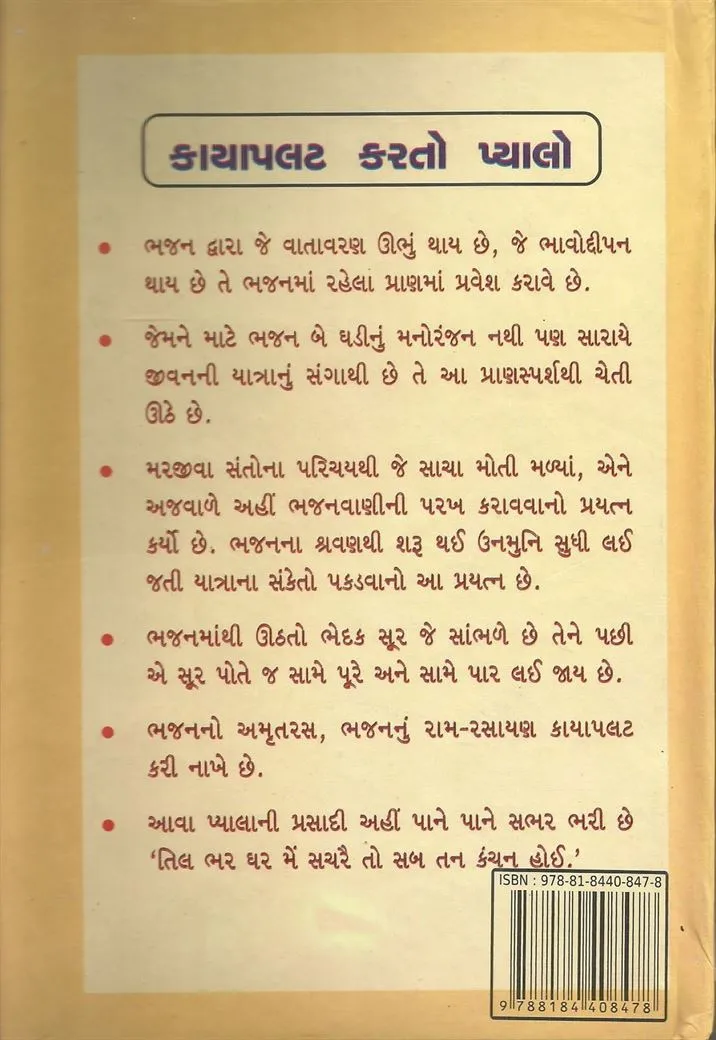 કાયાપલટ કરતો પ્યાલો
• ભજન દ્વારા જે વાતાવરણ ઊભું થાય છે, જે ભાવોદ્દીપન
થાય છે તે ભજનમાં રહેલા પ્રાણમાં પ્રવેશ કરાવે છે.
• જેમને માટે ભજન બે ઘડીનું મનોરંજન નથી પણ સારાયે
જીવનની યાત્રાનું સંગાથી છે તે આ પ્રાણસ્પર્શથી ચેતી
ઊઠે છે.
• મરજીવા સંતોના પરિચયથી જે સાચા મોતી મળ્યાં, એને
અજવાળે અહીં ભજનવાણીની પરખ કરાવવાનો પ્રયત્ન
કર્યો છે. ભજનના શ્રવણથી શરૂ થઈ ઉનમુનિ સુધી લઈ
જતી યાત્રાના સંકેતો પકડવાનો આ પ્રયત્ન છે.
• ભજનમાંથી ઊઠતો ભેદક સૂર જે સાંભળે છે તેને પછી
એ સૂર પોતે જ સામે પૂરે અને સામે પાર લઈ જાય છે.
• ભજનનો અમૃતરસ, ભજનનું રામ-રસાયણ કાયાપલટ
કરી નાખે છે.
• આવા પ્યાલાની પ્રસાદી અહીં પાને પાને સભર ભરી છે
‘તિલ ભર ઘર મેં સચરૈ તો સબ તન કંચન હોઈ.’
ISBN : 978-81-8440-847-8
9 788184 408478